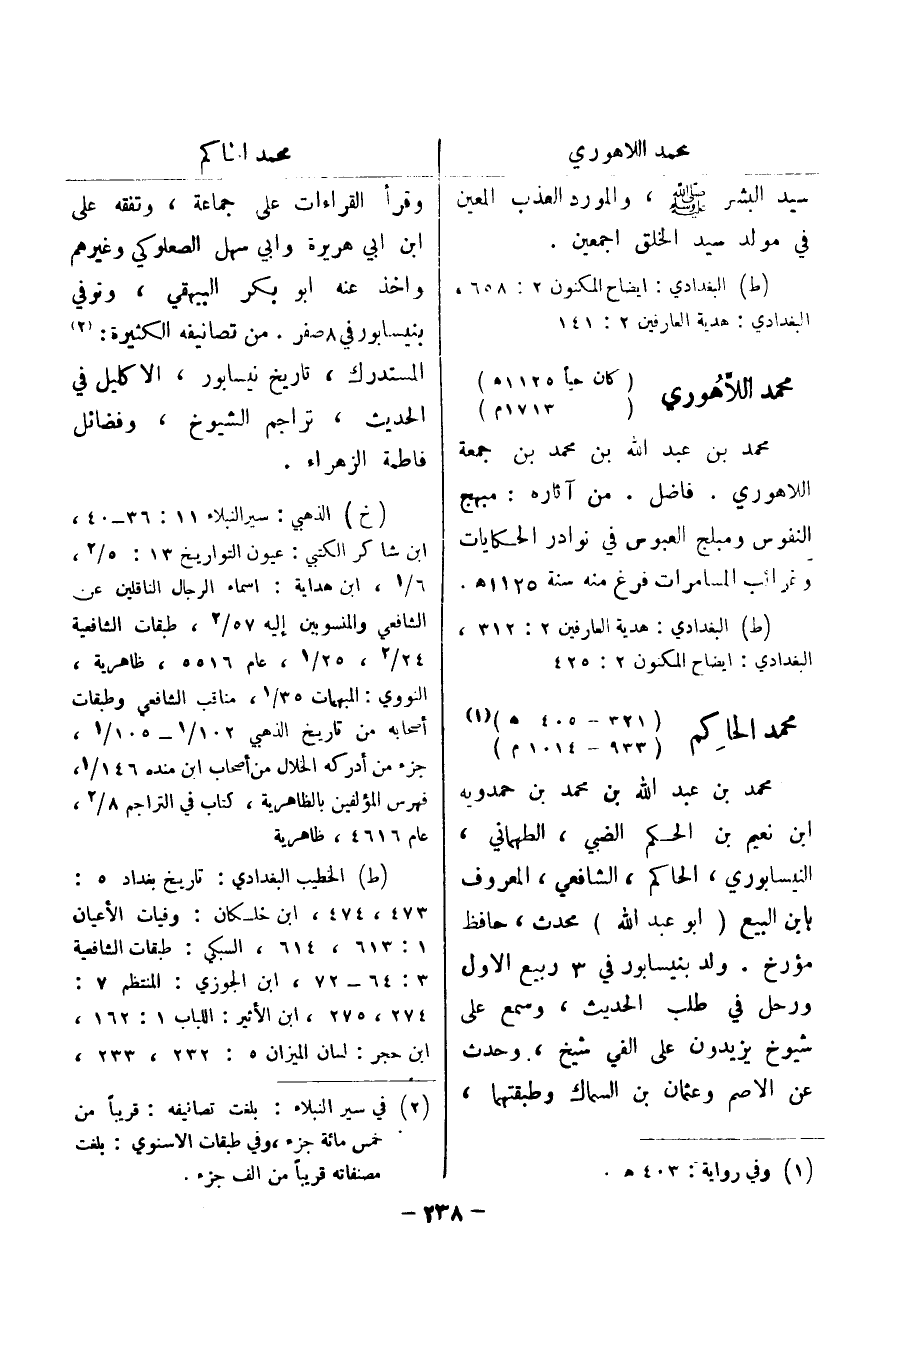 محمد اللاهوري
سيد البشر ﷺ ، والمورد العذب المعين
في مولد سيد الخلق اجمعين .
(ط) البغدادي : ايضاح المكنون ٢ : ٦٥٨ ،
البغدادي : هدية العارفين ٢ : ١٤١
محمد اللاَّهُوري ( كان حياً ١١٢٥ه )
( ١٧١٣م )
محمد بن عبد الله بن محمد بن جمعة
اللاهوري . فاضل . من آثاره : مبهج
النفوس ومبلج العبوس في نوادر الحكايات
وغرائب المسامرات فرغ منه سنة ١١٢٥ه .
(ط) البغدادي : هدية العارفين ٢ : ٣١٢ ،
البغدادي : ايضاح المكنون ٢ : ٤٢٥
محمد الحاكِم ( ٣٢١ – ٤٠٥ ه )(١)
( ٩٣٣ – ١٠١٤ م )
محمد بن عبد الله بن محمد بن حمدويه
ابن نعيم بن الحكم الضبي ، الطهماني ،
النيسابوري ، الحاكم ، الشافعي ، المعروف
بابن البيع ( ابو عبد الله ) محدث ، حافظ
مؤرخ . ولد بنيسابور في ٣ ربيع الاول
ورحل في طلب الحديث ، وسمع على
شيوخ يزيدون على الفي شيخ ، وحدث
عن الاصم وعثمان بن السماك وطبقتهما ،
(١) وفي رواية : ٤٠٣ ه .
محمد الحاكم
وقرأ القراءات على جماعة ، وتفقه على
ابن ابي هريرة وابي سهل الصعلوكي وغيرهم
واخذ عنه ابو بكر البيهقي ، وتوفي
بنيسابور في ٨ صفر . من تصانيفه الكثيرة :(٢)
المستدرك ، تاريخ نيسابور ، الاكليل في
الحديث ، تراجم الشيوخ ، وفضائل
فاطمة الزهراء .
(خ) الذهبي : سير النبلاء ١١ : ٣٦–٤٠ ،
ابن شاكر الكتبي : عيون التواريخ ١٣ : ٢/٥ ،
١/٦ ، ابن هداية : اسماء الرجال الناقلين عن
الشافعي والمنسوبين إليه ٢/٥٧ ، طبقات الشافعية
٢/٢٤ ، ١/٢٥ ، عام ٥٥١٦ ، ظاهرية ،
النووي : المبهمات ١/٣٥ ، مناقب الشافعي وطبقات
أصحابه من تاريخ الذهبي ١/١٠٢ – ١/١٠٥ ،
جزء من أدركه الخلال من أصحاب ابن منده ١/١٤٦ ،
فهرس المؤلفين بالظاهرية ، كتاب في التراجم ٢/٨ ،
عام ٤٦١٦ ، ظاهرية
(ط) الخطيب البغدادي : تاريخ بغداد ٥ :
٤٧٣ ، ٤٧٤ ، ابن خلكان : وفيات الأعيان
١ : ٦١٣ ، ٦١٤ ، السبكي : طبقات الشافعية
٣ : ٦٤ – ٧٢ ، ابن الجوزي : المنتظم ٧ :
٢٧٤ ، ٢٧٥ ، ابن الأثير : اللباب ١ : ١٦٢ ،
ابن حجر : لسان الميزان ٥ : ٢٣٢ ، ٢٣٣ ،
(٢) في سير النبلاء : بلغت تصانيفه : قريباً من
خمس مائة جزء ، وفي طبقات الاسنوي : بلغت
مصنفاته قريباً من الف جزء .
– ٢٣٨ –